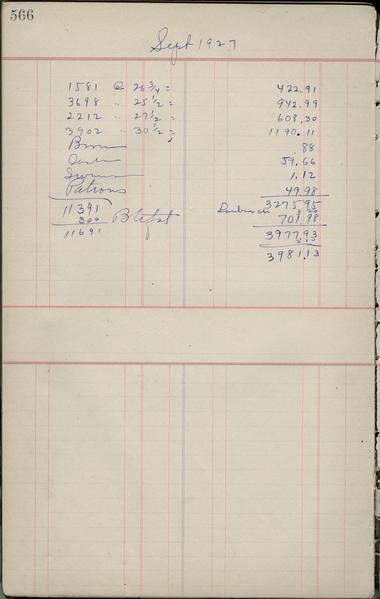 566
Sept 1927
1581 @ 26 3/4 = 422.91
3698 " 25 1/2 = 942.99
2212 " 27 1/2 = 608.30
3902 " 30 1/2 = 1190.11
.88
59.66
1.12
Patrons 49.98
11391 3275.95
300 701.98
11691 3977.93
3981.13